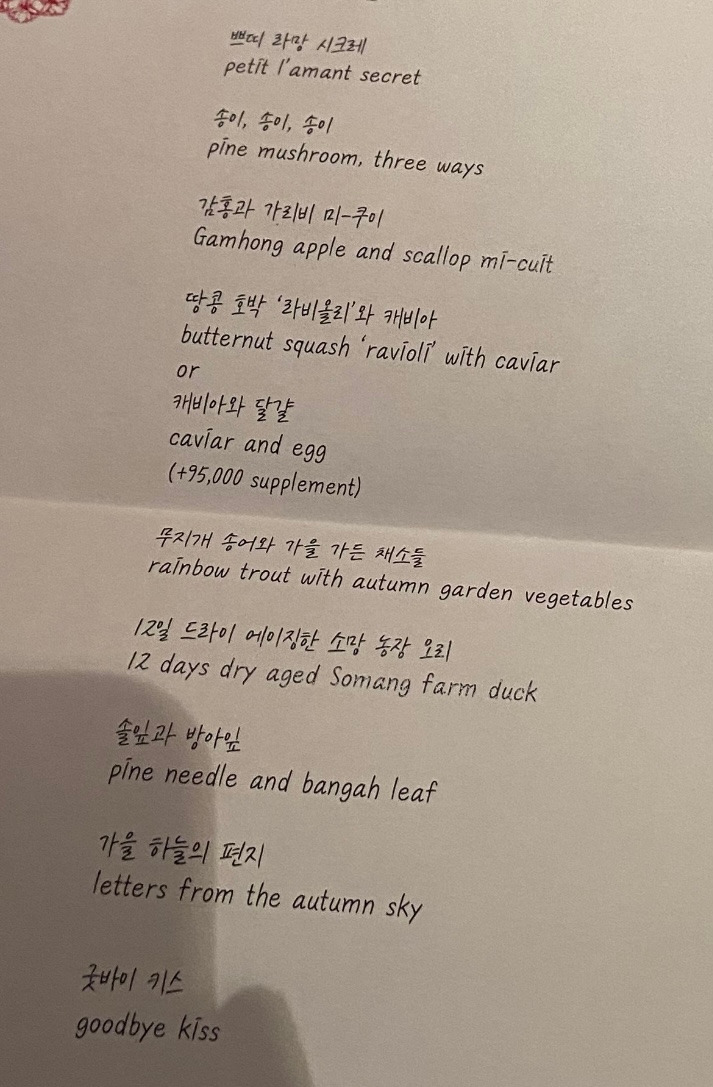 쁘띠 라망 시크레
petit l'amant secret
송이, 송이, 송이
pine mushroom, three ways
감홍과 가리비 미-쿠이
Gamhong apple and scallop mi-cuit
땅콩 호박 '라비올리'와 캐비아
butternut squash 'ravioli' with caviar
or
캐비아와 달걀
caviar and egg
(+95,000 supplement)
무지개 송어와 가을 가든 채소들
rainbow trout with autumn garden vegetables
12일 드라이 에이징한 소망 농장 오리
12 days dry aged Somang farm duck
솔잎과 방아잎
pine needle and bangah leaf
가을 하늘의 편지
letters from the autumn sky
굿바이 키스
goodbye kiss